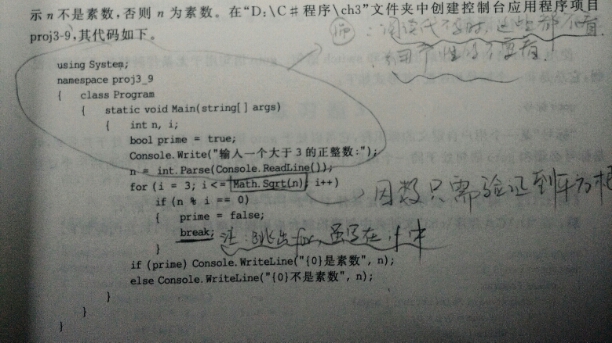 示 n 不是素数，否则 n 为素数。在“D:\C＃程序\ch3”文件夹中创建控制台应用程序项目
proj3-9,其代码如下。
using System;
namespace proj3_9
{ class Program
{ static void Main(string[] args)
{ int n, i;
bool prime = true;
Console.Write("输入一个大于3的正整数:");
n = int.Parse(Console.ReadLine());
for (i = 3; i <= Math.Sqrt(n); i++) 因数只需验证到平方根
if (n % i == 0)
{ prime = false;
break; 注 跳出
}
if (prime) Console.WriteLine("{0}是素数", n);
else Console.WriteLine("{0}不是素数", n);
}
}
}